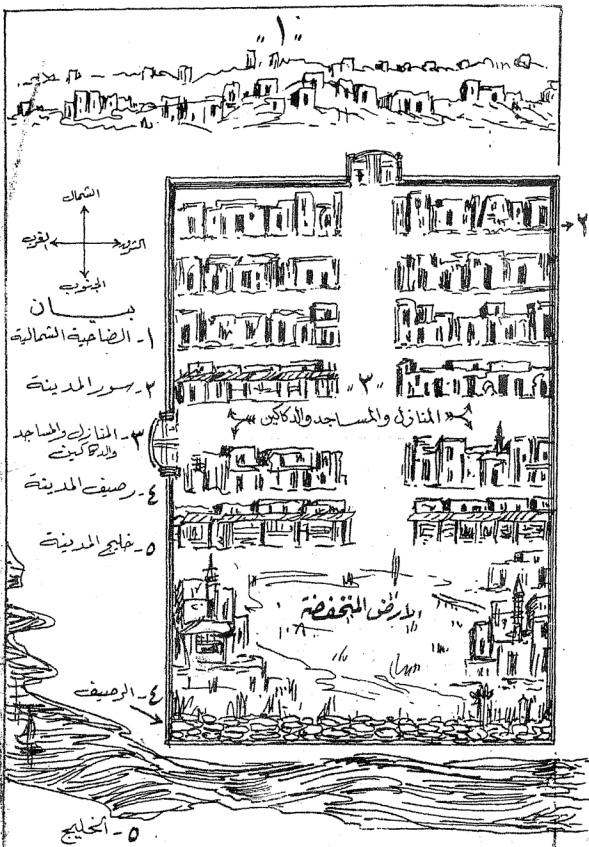 "١"
الشمال
الشرق
الغرب
الجنوب
بيان
١- الضاحية الشمالية
٢- سور المدينة
٣- المنازل والمساجد
والدكاكين
٤- رصيف المدينة
٥- خليج المدينة
٢
"٣"
المنازل والمساجد والدكاكين
الأرض المنخفضة
٤- الرصيف
٥- الخليج